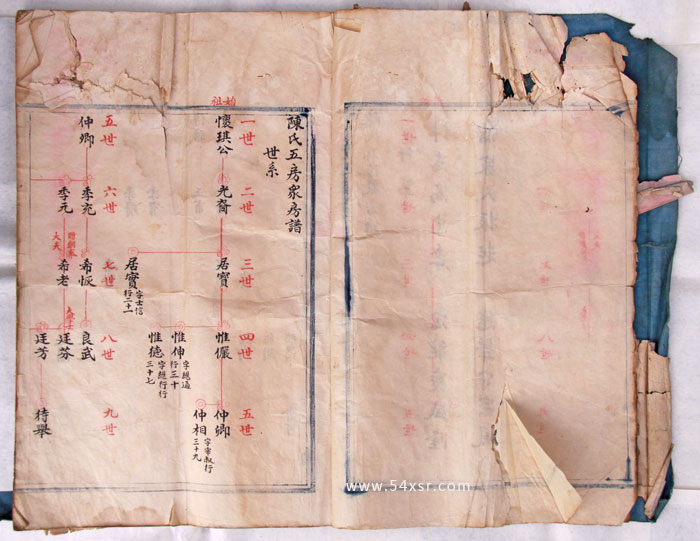 陳氏五房家房譜
世系
始祖
一世
二世
三世
四世
五世
懷琪公
光裔
居寶
惟儼
仲卿
字宰叔行
三十九
仲相
惟伸
字趨遠
行三十
惟德
字趨行行
三十七
居實
字士信
行二十一
五世
六世
七世
八世
九世
仲卿
季充
希恢
良武
季元
希老
廷芬
廷芳
待舉
www.54xsr.com